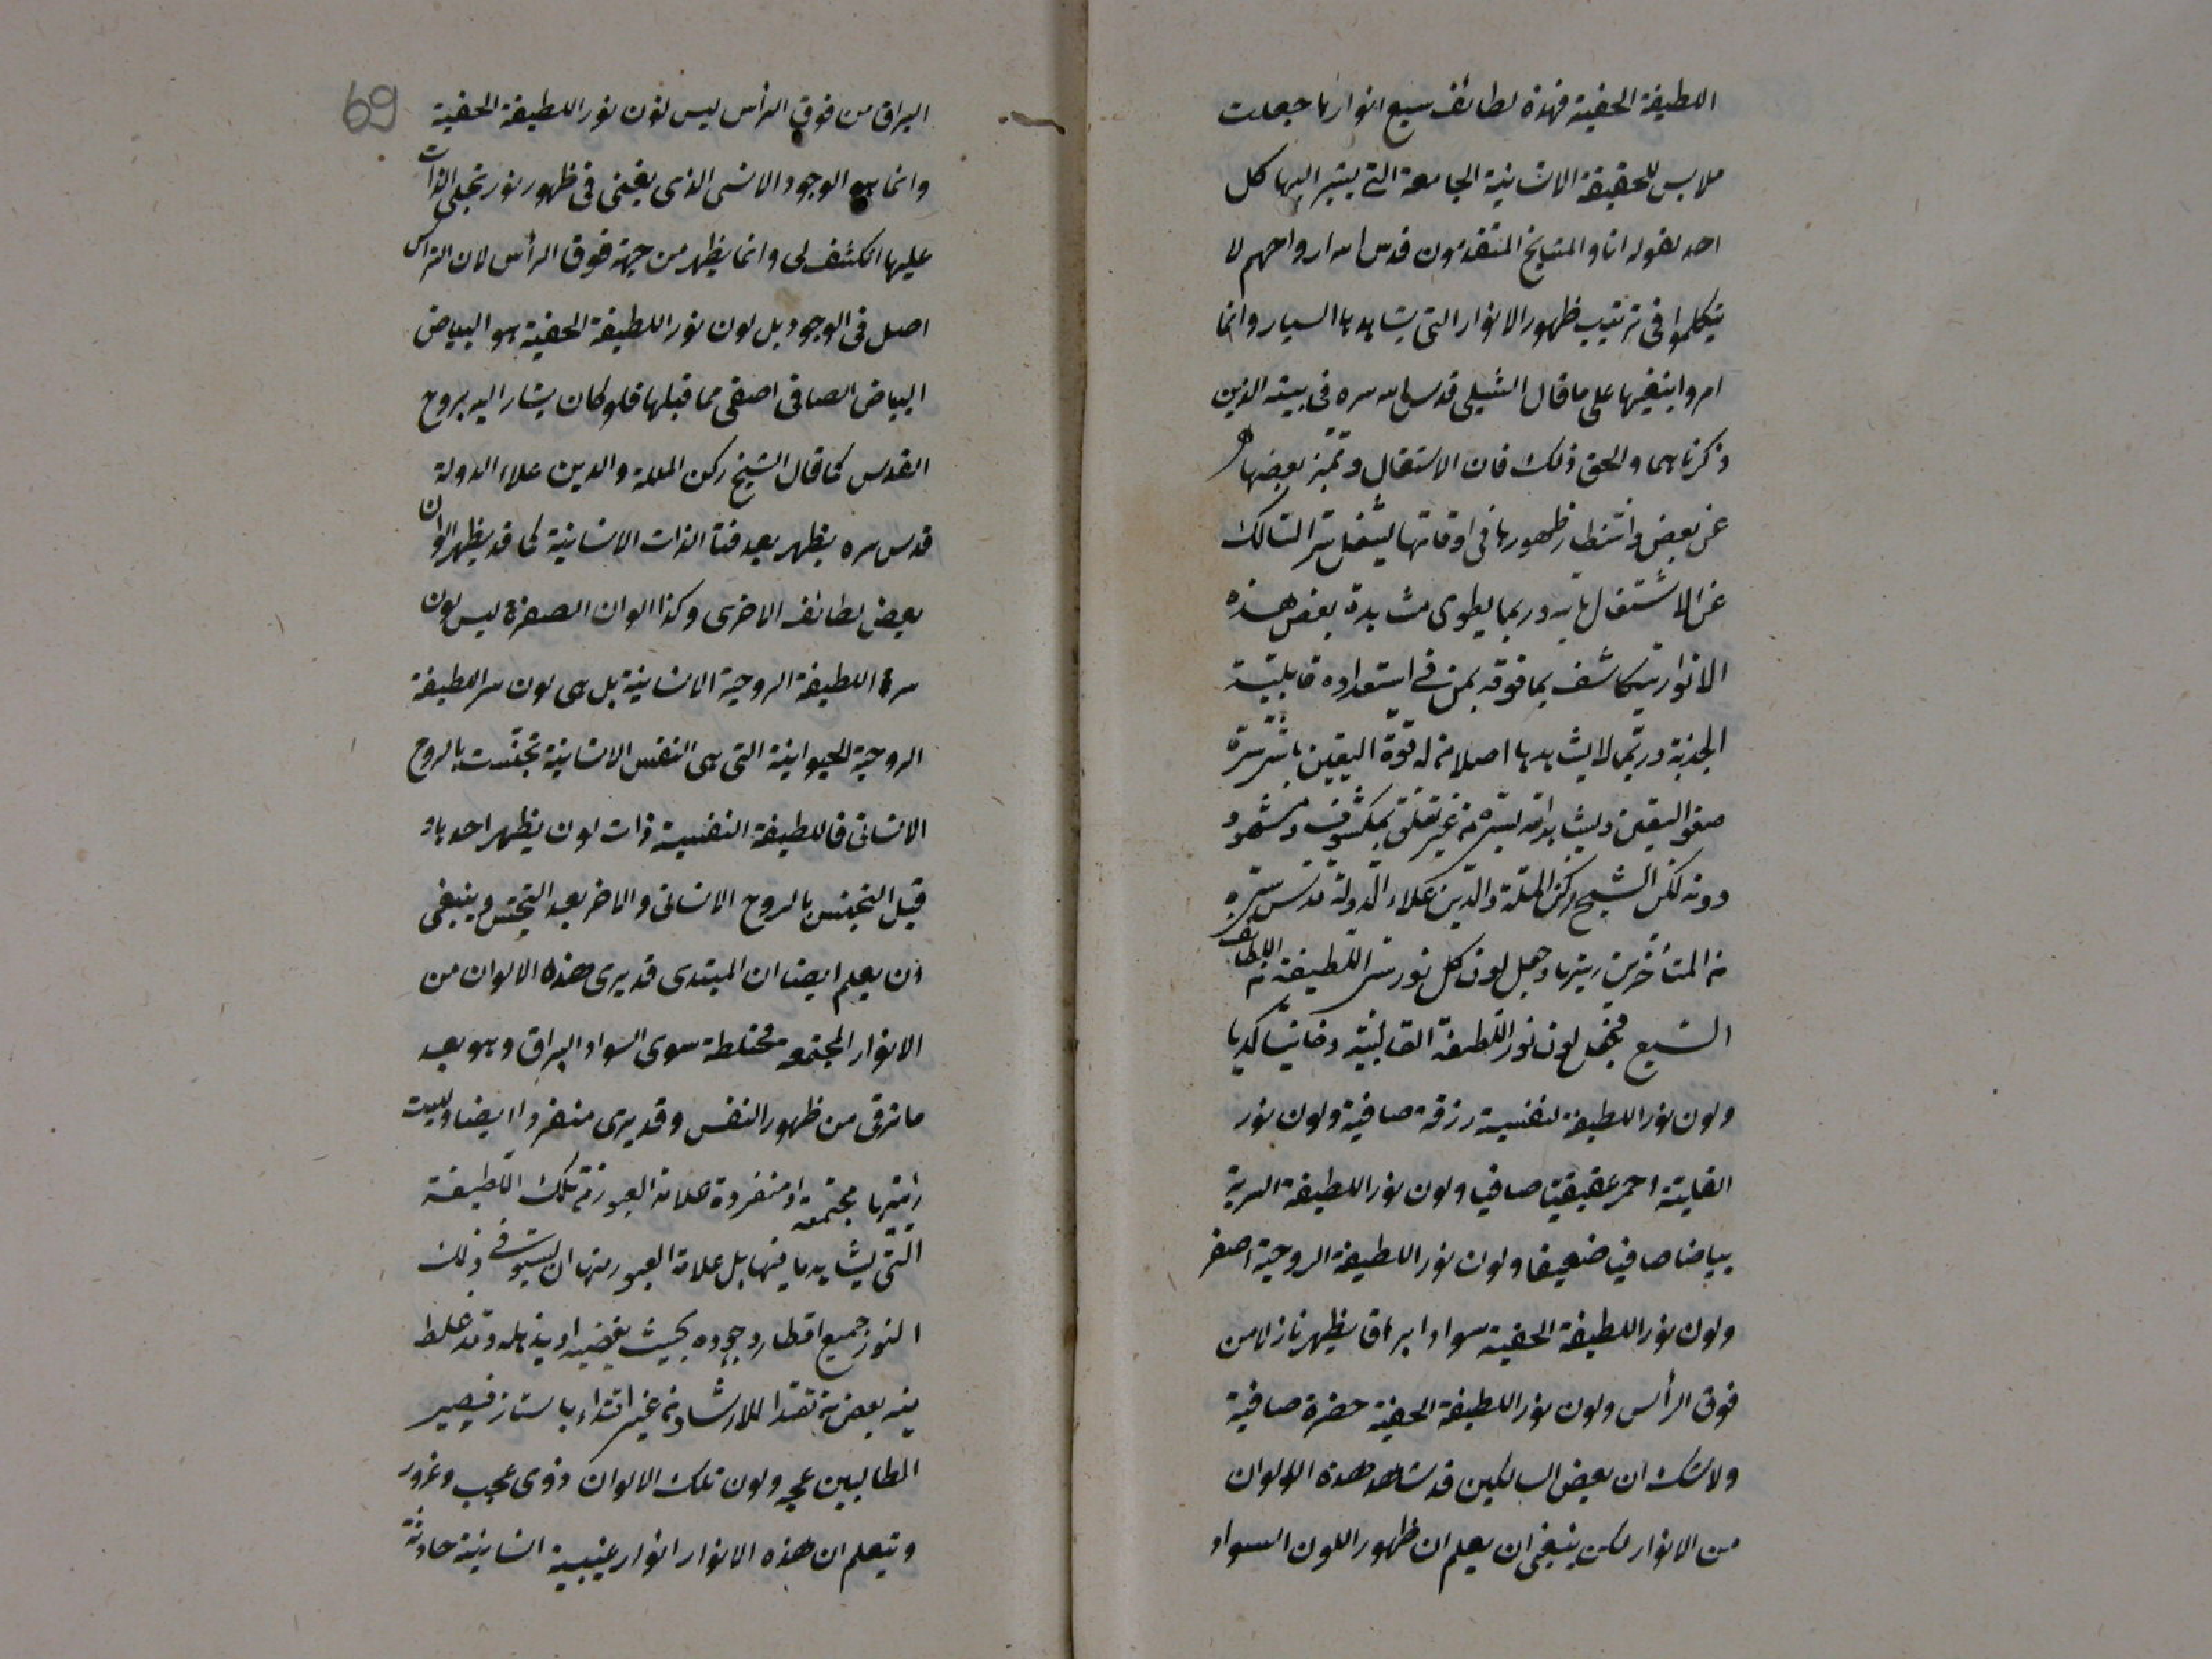 اللطيفة الحقية فهذه لطائف سبع انوارها جعلت
ملابس للحقيقة الانسانية الجامعة التي يشير اليها كل
احد بقوله انا والمشايخ المتقدمون قدس الله ارواحهم لا
يتكلموا في ترتيب ظهور الانوار التي يشاهدها السيار وانما
امروا بنفيها على ما قال الشبلي قدس الله سره في بيته الذين
ذكرناهما والحق ذلك فان الاشتغال وتميز بعضها
عن بعض وانتظار ظهورها في اوقاتها يشغل سر السالك
عن الاشتغال بالله وربما يطوى مشاهدة بعض هذه
الانوار يتكاشف بما فوقه بمن في استعداده قابلية
الجذبة وربما لا يشاهدها اصلا من له قوة اليقين باشر سره
صفو اليقين ويشاهد الله بسره من غير تعلق بمكشوف ومشهود
دونه لكن الشيخ ركن الملة والدين علاء الدولة قدس سره
من المتأخرين رتبها وجعل لون كل نور ستر اللطيفة من اللطائف
السبع فجعل لون نور اللطيفة القالبية دخانيا كدرا
ولون نور اللطيفة لنفسية زرقة صافية ولون نور
القلبية احمر عقيقيا صافيا ولون نور اللطيفة السرية
بياضا صافيا ضعيفا ولون نور اللطيفة الروحية اصفر
ولون نور اللطيفة الخفية سوادا براقا يظهر نازلا من
فوق الرأس ولون نور اللطيفة الحقية خضرة صافية
ولا شك ان بعض السالكين قد شاهد هذه الالوان
من الانوار لكن ينبغي ان يعلم ان ظهور اللون السواد
69
البراق من فوق الرأس ليس لون نور اللطيفة الخفية
وانما هو الوجود الانسي الذي يفنى في ظهور نور تجلي الذات
عليها انكشف لي وانما يظهر من جهة فوق الرأس لان الرأس
اصل في الوجود بل لون نور اللطيفة الخفية هو البياض
البياض الصافي اصفى مما قبلها فلو كان يشار اليه بروح
القدس كما قال الشيخ ركن الملة والدين علاء الدولة
قدس سره يظهر بعد فنآ الذات الانسانية كما قد يظهر الوان
بعض لطائف الاخرى وكذا الوان الصفرة ليس لون
سر اللطيفة الروحية الانسانية بل هي لون سر اللطيفة
الروحية الحيوانية التي هي النفس الانسانية تجنست بالروح
الانساني فاللطيفة النفسية ذات لون يظهر احدهما
قبل التجنس بالروح الانساني والاخر بعد التجنس وينبغي
ان يعلم ايضا ان المبتدى قد يرى هذه الالوان من
الانوار المجتمعة مختلطة سوى السواد البراق وهو بعد
ما ترقى من ظهور النفس وقد يرى منفردا ايضا وليست
رايتها مجتمعة او منفردة علامة العبور من تلك اللطيفة
التي يشاهدها فيها بل علامة العبور منها ان يستوفي ذلك
النور جميع اقطار وجوده بحيث يفنيه او يذهله وقد غلط
فيه بعض من تصدا للارشاد من غير اقتداء باستاذ فيصير
الطالبين عجبه ولون تلك الالوان ذوى عجب وغرور
وتعلم ان هذه الانوار انوار غيبية انسانية حادثة